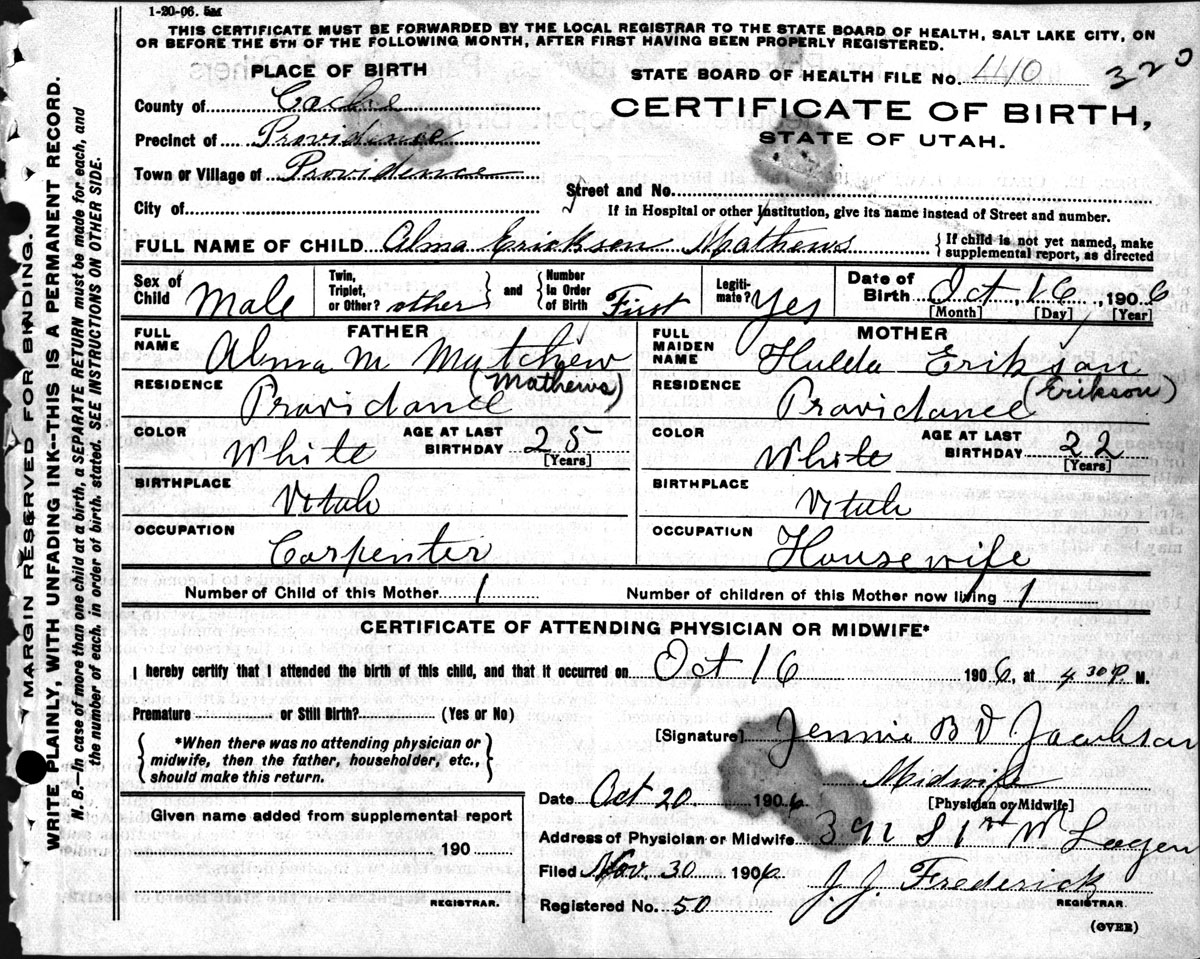 1-20-06. 5M
THIS CERTIFICATE MUST BE FORWARDED BY THE LOCAL REGISTRAR TO THE STATE BOARD OF HEALTH, SALT LAKE CITY, ON
OR BEFORE THE 5TH OF THE FOLLOWING MONTH, AFTER FIRST HAVING BEEN PROPERLY REGISTERED.
PLACE OF BIRTH
STATE BOARD OF HEALTH FILE No. 440 320
County of Cache
CERTIFICATE OF BIRTH,
Precinct of Providence
STATE OF UTAH.
Town or Village of Providence
Street and No.
City of
If in Hospital or other Institution, give its name instead of Street and number.
FULL NAME OF CHILD Alma Erickson Mathews { If child is not yet named, make
supplemental report, as directed
Sex of Child Male Twin, Triplet, or Other? other } and { Number In Order of Birth First Legiti- mate? Yes Date of Birth Oct, 16, 1906
[Month] [Day] [Year]
FATHER MOTHER
FULL NAME Alma M Mutchew FULL MAIDEN NAME Hulda Erikson
(Mathews) (Erikson)
RESIDENCE Providance RESIDENCE Providance
COLOR White AGE AT LAST BIRTHDAY 25 [Years] COLOR White AGE AT LAST BIRTHDAY 22 [Years]
BIRTHPLACE Vitah BIRTHPLACE Vitah
OCCUPATION Carpenter OCCUPATION Housewife
Number of Child of this Mother 1 Number of children of this Mother now living 1
CERTIFICATE OF ATTENDING PHYSICIAN OR MIDWIFE*
I hereby certify that I attended the birth of this child, and that it occurred on Oct 16 1906, at 4 30 P. M.
Premature or Still Birth? (Yes or No)
[Signature] Jennie B V Jacobson
{ *When there was no attending physician or
midwife, then the father, householder, etc.,
should make this return. }
Midwife
[Physician or Midwife]
Date Oct 20. 1906
Given name added from supplemental report
Address of Physician or Midwife 392 S 1st W Logen
190
Filed Nov. 30 1906 J. J. Frederick
REGISTRAR.
Registered No. 50
REGISTRAR.
(OVER)
MARGIN RESERVED FOR BINDING.
WRITE PLAINLY, WITH UNFADING INK--THIS IS A PERMANENT RECORD.
N. B.--In case of more than one child at a birth, a SEPARATE RETURN must be made for each, and
the number of each, in order of birth, stated. SEE INSTRUCTIONS ON OTHER SIDE.